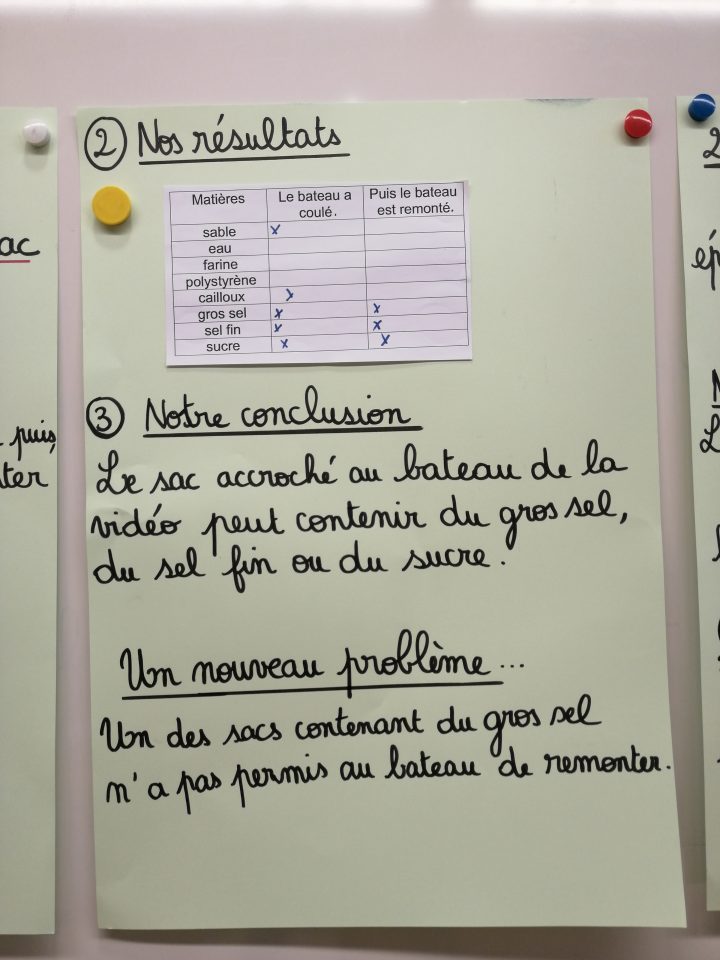 ② Nos résultats
Matières | Le bateau a coulé. | Puis le bateau est remonté.
sable | x |
eau | |
farine | |
polystyrène | |
cailloux | x |
gros sel | x | x
sel fin | x | x
sucre | x | x
③ Notre conclusion
Le sac accroché au bateau de la
vidéo peut contenir du gros sel,
du sel fin ou du sucre.
Un nouveau problème...
Un des sacs contenant du gros sel
n'a pas permis au bateau de remonter.
ac
puis,
ter
2
ép
L